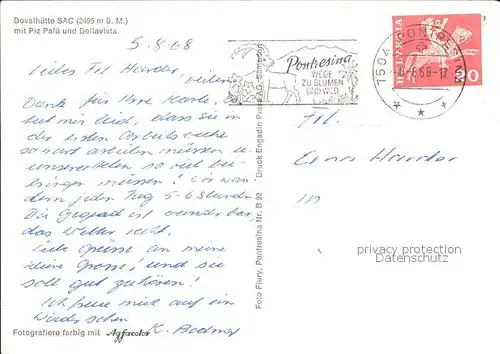 Bovalhütte SAC (2495 m ü. M.)
mit Piz Palü und Bellavista
5.8.68
Liebes Frl Harder,
vielen
Dank für Ihre Karte. Es
tut mir leid, dass sie in
der ersten Arbeitswoche
so hart arbeiten müssen u.
so viel
müssen! Wir
jeden Tag 5-6 Stunden
Die Gegend ist wunderbar,
das Wetter
Viele Grüsse an meine
kleine Grosse! und sie
soll gut zuhören!
Ich freue mich auf ein
Wiedersehen
K. Bodmer
Fotografiere farbig mit Agfacolor
Foto Flury, Pontresina Nr. B 92
Druck Engadin Press AG, Samedan
Pontresina
WEGE
ZU BLUMEN
UND WILD
7504 PONTRESINA
8.68-17
HELVETIA
20
Frl.
Harder
in
papierosammler.de
Datenschutz